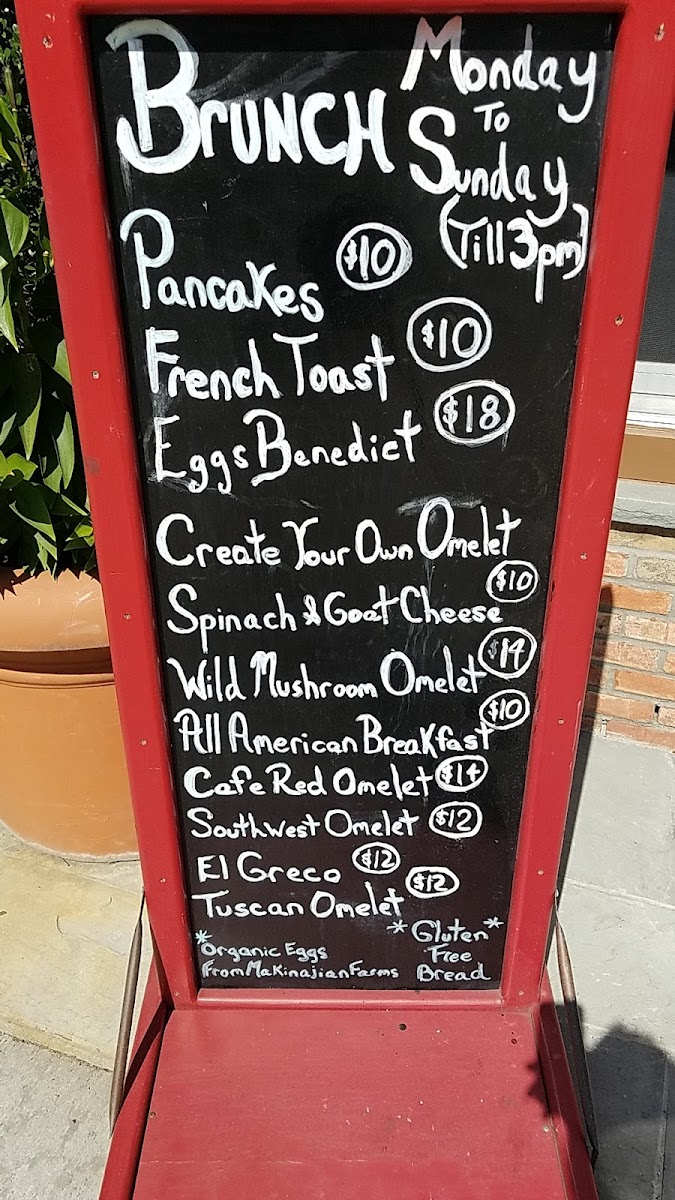 Brunch
Monday
To
Sunday
(Till 3pm)
Pancakes $10
French Toast $10
Eggs Benedict $18
Create Your Own Omelet
Spinach & Goat Cheese $10
Wild Mushroom Omelet $14
All American Breakfast $10
Cafe Red Omelet $14
Southwest Omelet $12
El Greco $12
Tuscan Omelet $12
*Organic Eggs
From Makinajian Farms
*Gluten*
Free
Bread